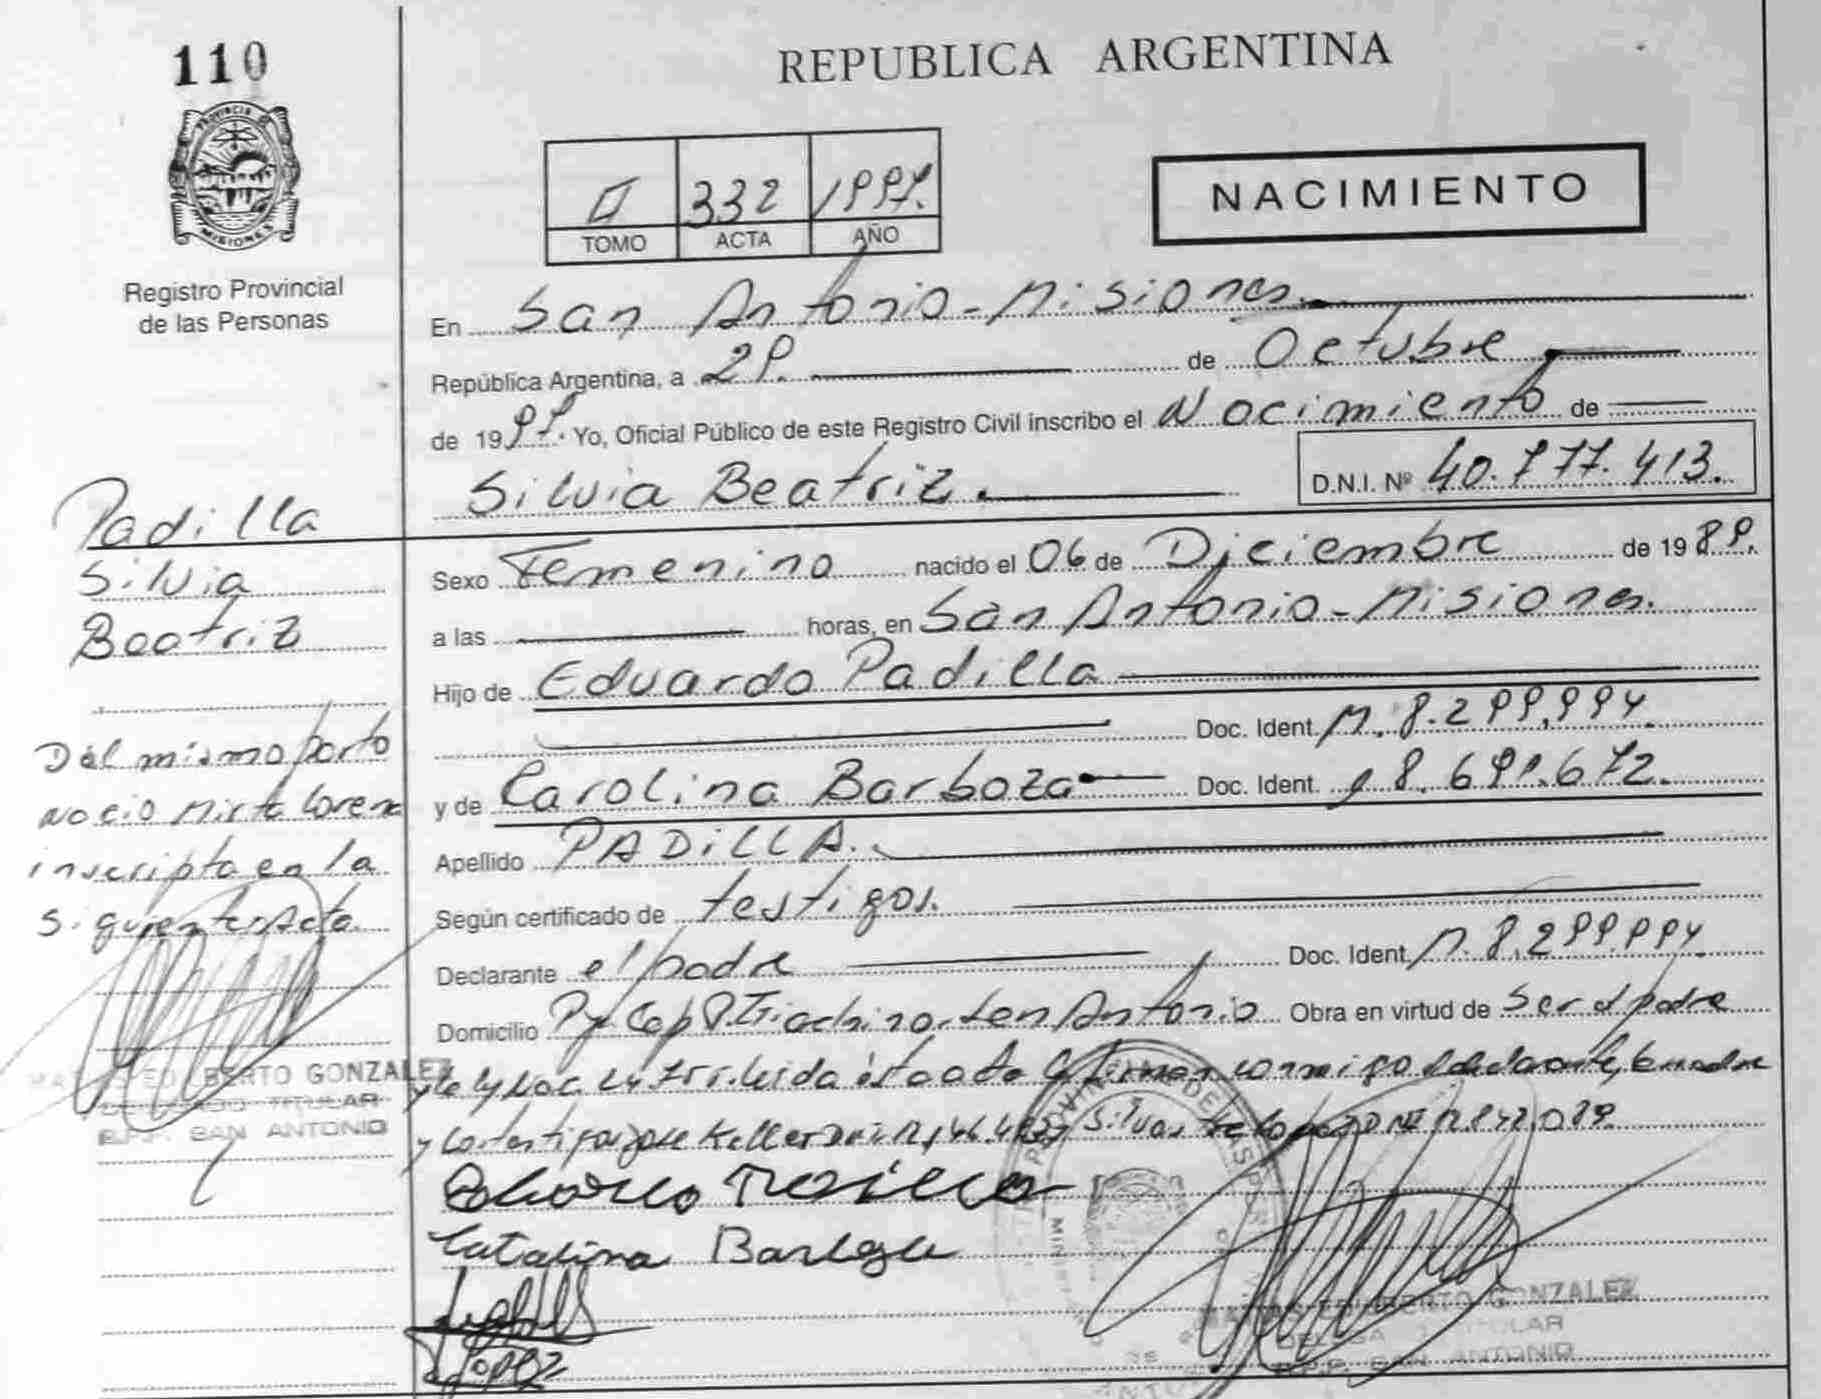 110
PROVINCIA DE MISIONES
Registro Provincial
de las Personas
REPUBLICA ARGENTINA
332 1997.
TOMO ACTA AÑO
NACIMIENTO
En San Antonio - Misiones.
República Argentina, a 29. de Octubre
de 1997. Yo, Oficial Público de este Registro Civil inscribo el Nacimiento de
Silvia Beatriz. D.N.I. Nº 40.777.413.
Padilla
Silvia
Beatriz
Sexo Femenino nacido el 06 de Diciembre de 1989.
a las horas, en San Antonio - Misiones.
Hijo de Eduardo Padilla
Doc. Ident. M. 8.299.994.
y de Carolina Barboza Doc. Ident. 8.691.672.
Apellido PADiLLA.
Según certificado de testigos.
Declarante el padre Doc. Ident. M. 8.299.994
Domicilio San Antonio Obra en virtud de Ser el padre
Del mismo parto
nacio Mirta Lorena
inscripta en la
siguiente Acta.
leida esta acta la firman conmigo el declarante, la madre
y los testigos Jose Keller
Catalina
Lopez
GONZALEZ
DELEGADO TITULAR
R.P.P. SAN ANTONIO
GONZALEZ
SAN ANTONIO